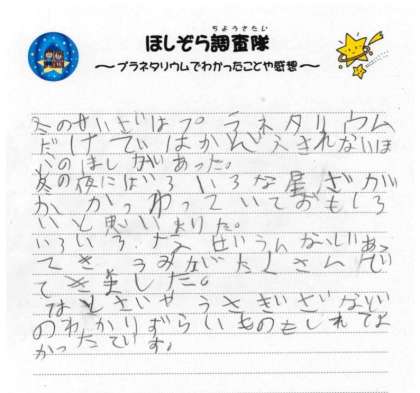 ちょうさたい
ほしぞら調査隊
～プラネタリウムでわかったことや感想～
冬のせいざはプラネタリウム
だけではかんぺきれないほ
どのほしがあった。
冬の夜にはいろいろな星ざが
かかわっていておもしろ
いと思いました。
いろいろな
てき
たくさんで
てきました。
はとざやうさぎざなど
のわかりずらいものもしれてよ
かったです。